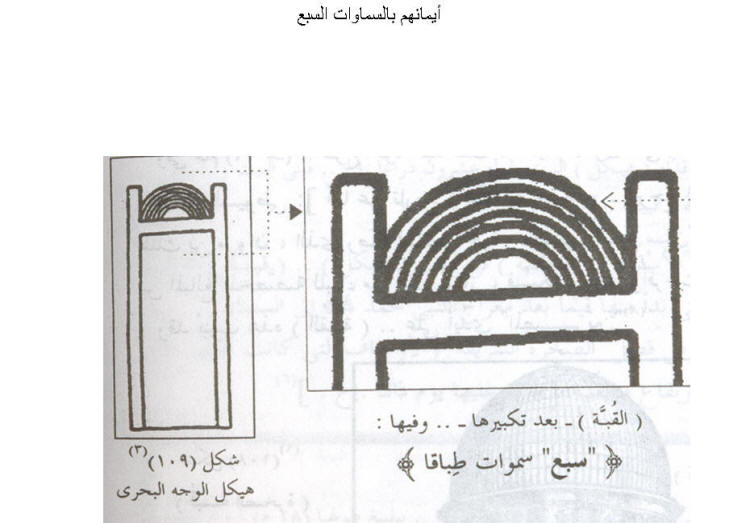 أيمانهم بالسماوات السبع
( القُبَّة ) ـ بعد تكبيرها ـ .. وفيها :
﴿ "سبع" سموات طِباقا ﴾
شكل (١٠٩)(٣)
هيكل الوجه البحرى